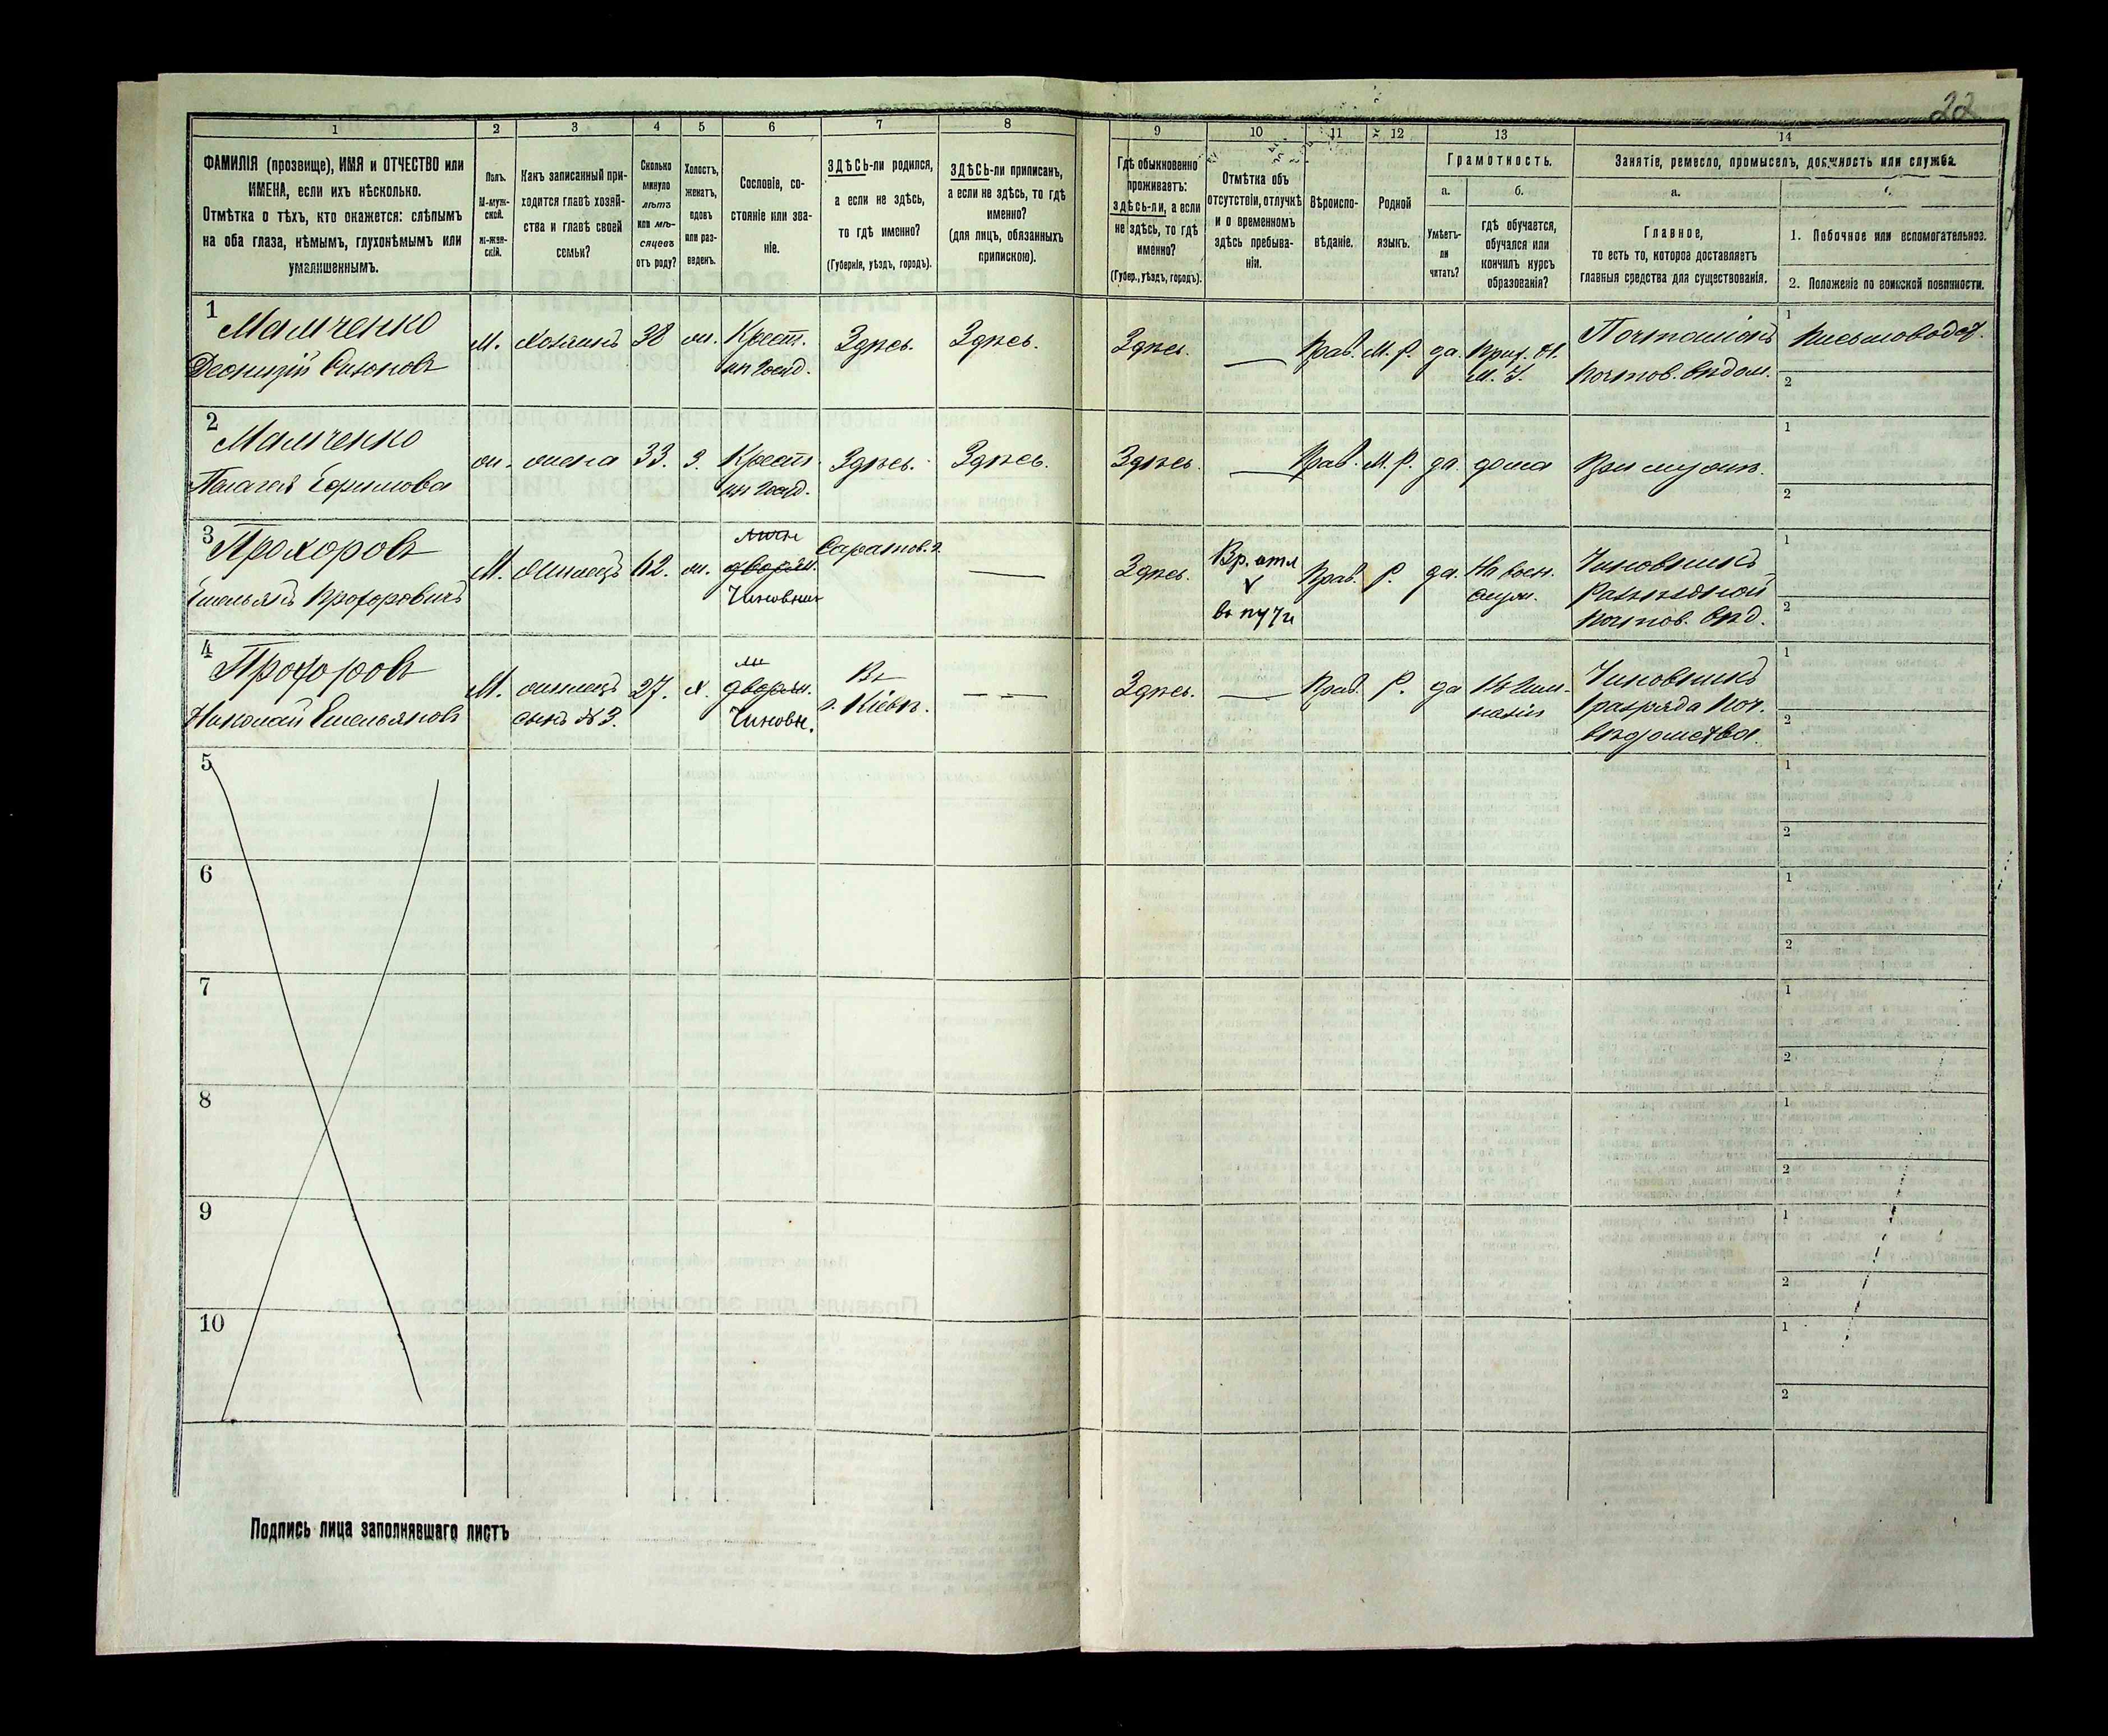 22
1
2
3
4
5
6
7
8
9
10
11
12
13
14
ФАМИЛІЯ (прозвище), ИМЯ и ОТЧЕСТВО или
ИМЕНА, если ихъ нѣсколько.
Отмѣтка о тѣхъ, кто окажется: слѣпымъ
на оба глаза, нѣмымъ, глухонѣмымъ или
умалишеннымъ.
Полъ.
М-муж-
ской.
ж-жен-
скій.
Какъ записанный при-
ходится главѣ хозяй-
ства и главѣ своей
семьи?
Сколько
минуло
лѣтъ
или мѣ-
сяцевъ
отъ роду?
Холостъ,
женатъ,
вдовъ
или раз-
веденъ.
Сословіе, со-
стояніе или зва-
ніе.
ЗДѢСЬ-ли родился,
а если не здѣсь,
то гдѣ именно?
(Губернія, уѣздъ, городъ).
ЗДѢСЬ-ли приписанъ,
а если не здѣсь, то гдѣ
именно?
(для лицъ, обязанныхъ
припискою).
Гдѣ обыкновенно
проживаетъ:
здѣсь-ли, а если
не здѣсь, то гдѣ
именно?
(Губер., уѣздъ, городъ).
Отмѣтка объ
отсутствіи, отлучкѣ
и о временномъ
здѣсь пребыва-
ніи.
Вѣроиспо-
вѣданіе.
Родной
языкъ.
Грамотность.
а.
б.
Умѣетъ-
ли
читать?
гдѣ обучается,
обучался или
кончилъ курсъ
образованія?
Занятіе, ремесло, промыселъ, должность или служба.
а.
Главное,
то есть то, которое доставляетъ
главныя средства для существованія.
1. Побочное или вспомогательное.
2. Положеніе по воинской повинности.
1
Мамченко
М. хозяинъ 38 ж. Крест. Здѣсь. Здѣсь. Здѣсь. — Прав. М. Р. да. Почталіонъ
Почтов. вѣдом.
1
2
2
Мамченко
Пелагея Ефимова
ж. жена 33. З. Крест. Здѣсь. Здѣсь. Здѣсь. — Прав. М. Р. да. дома При мужѣ.
1
2
3
Прохоровъ
Емельянъ Прохоровичъ
М. жилецъ 62. ж. дворян.
Чиновник
Саратов. г. — Здѣсь. Вр. отл
в пути
Прав. Р. да. На воен.
Чиновникъ
Почтов. вѣд.
1
2
4
Прохоровъ
Николай Емельяновъ
М. жилецъ
сынъ № 3.
27. х. дворян.
Чиновн.
Въ
г. Кіевѣ.
— — Здѣсь. — Прав. Р. да Въ Гим-
назіи
Чиновникъ
разряда Поч.
вѣдомства.
1
2
5
1
2
6
1
2
7
1
2
8
1
2
9
1
2
10
1
2
Подпись лица заполнявшаго листъ